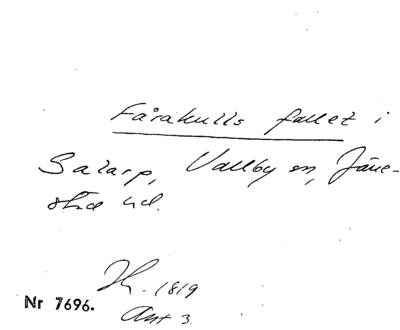 Fårakulls fallet i
Salarp, Vallby sn, Järre-
stad hd.
Nr 7696.
1819
Ant 3.